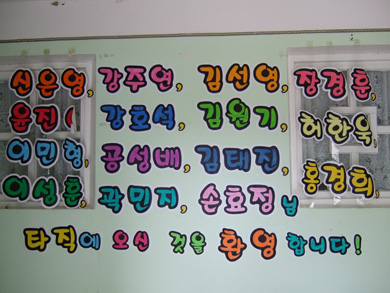 신은영, 강주연, 김선영, 장경훈,
윤진, 강호석, 김원기, 허환욱,
이민형, 공성배, 김태진, 홍경희,
이성훈, 곽민지, 손효정님
타직에 오신 것을 환영합니다!